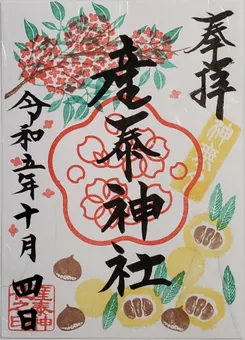 奉拝
産泰神社
令和五年十月四日
産泰神
社之印